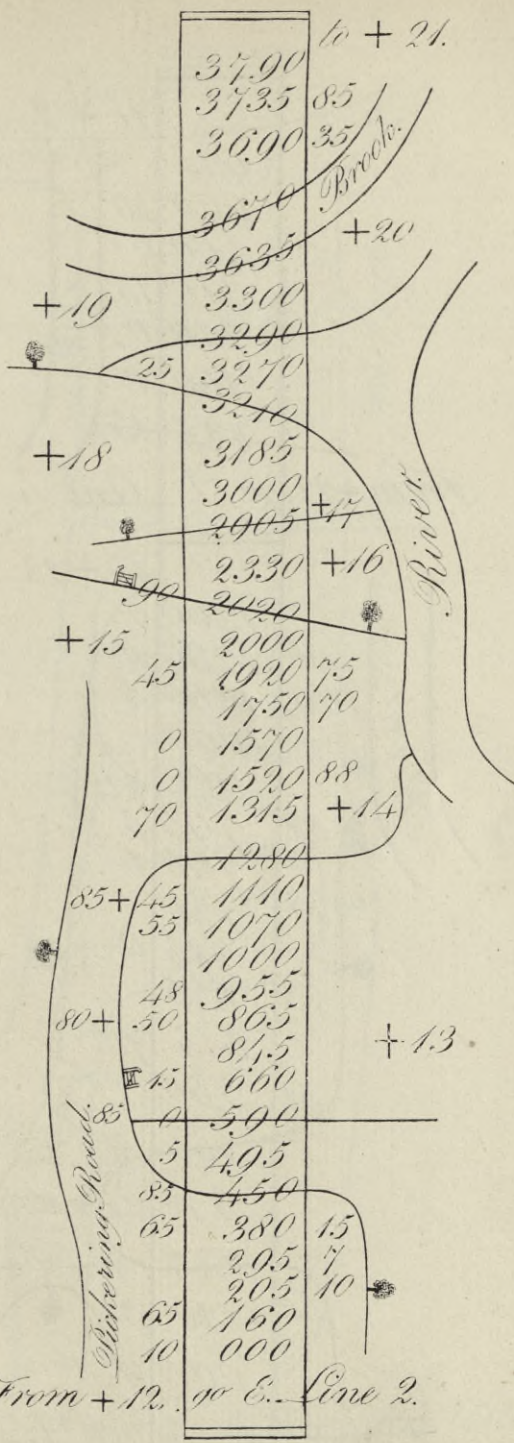 to + 21.
3790
3735 85
3690 35
Brook.
3670
3635 +20
+19 3300
3290
25 3270
3210
+18 3185
3000
2905 +17
2330 +16
River.
90 2020
+15 2000
45 1920 75
1750 70
0 1570
0 1520 88
70 1315 +14
1280
85+ 45 1110
55 1070
1000
48 955
80+ 50 865
845 +13
15 660
85 0 590
5 495
85 450
65 380 15
295 7
205 10
65 160
10 000
Pickering Road.
From +12. go E. Line 2.